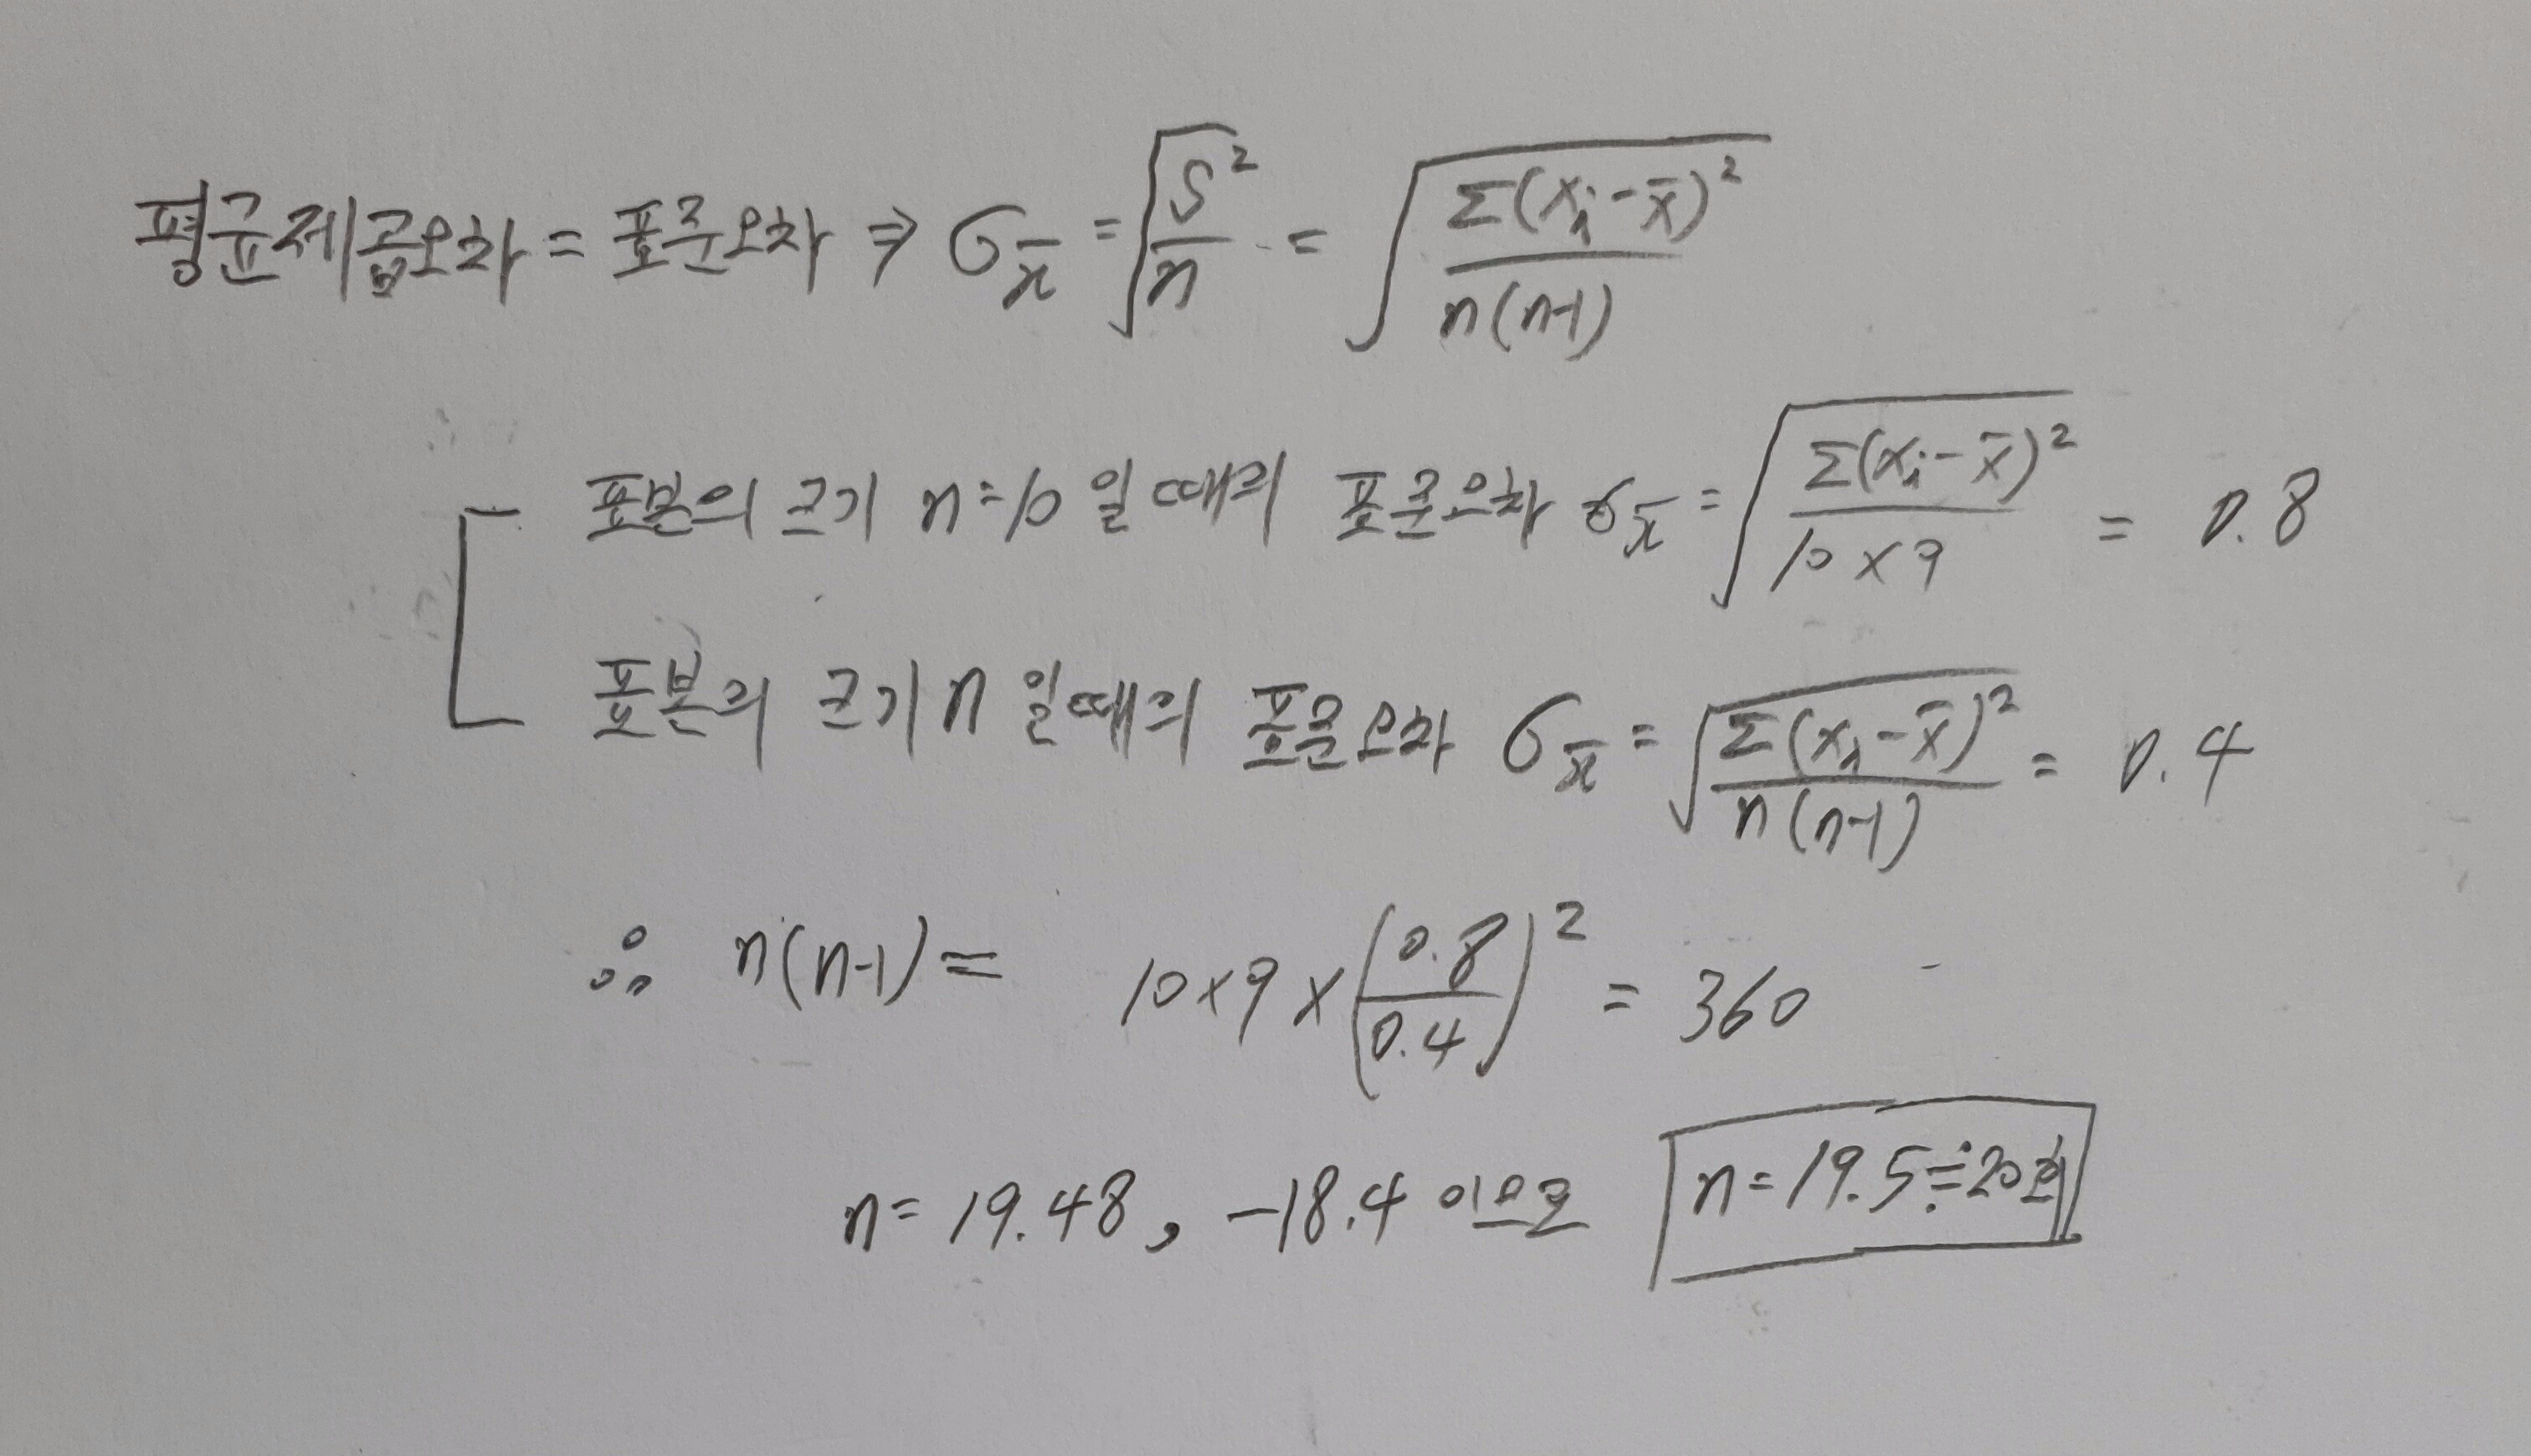 평균제곱오차 = 표준오차 ⇒ σ_x̄ = √(S²/n) = √(Σ(xᵢ-x̄)²/n(n-1))
표본의 크기 n=10 일때의 표준오차 σ_x̄ = √(Σ(xᵢ-x̄)²/10×9) = 0.8
표본의 크기 n 일때의 표준오차 σ_x̄ = √(Σ(xᵢ-x̄)²/n(n-1)) = 0.4
∴ n(n-1) = 10×9×(0.8/0.4)² = 360
n = 19.48, -18.4 이므로 n = 19.5 ≒ 20회